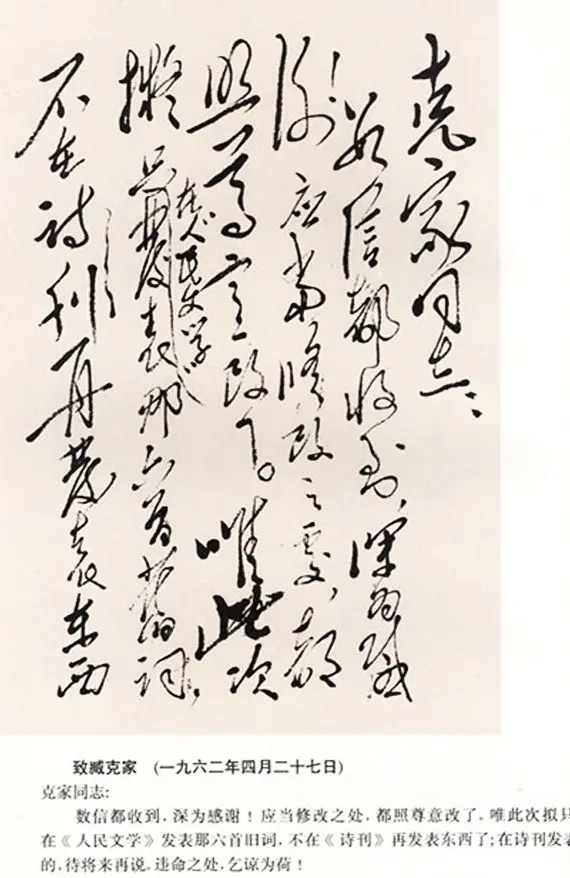 克家同志：
数信都收到，深为感
谢！应当修改之处，都
照尊意改了。唯此次
拟只在人民文学发表那六首旧词，
不在诗刊再发表东西
致臧克家 (一九六二年四月二十七日)
克家同志:
数信都收到，深为感谢！应当修改之处，都照尊意改了，唯此次拟只
在《人民文学》发表那六首旧词，不在《诗刊》再发表东西了；在诗刊发表
的，待将来再说，违命之处，乞谅为荷！